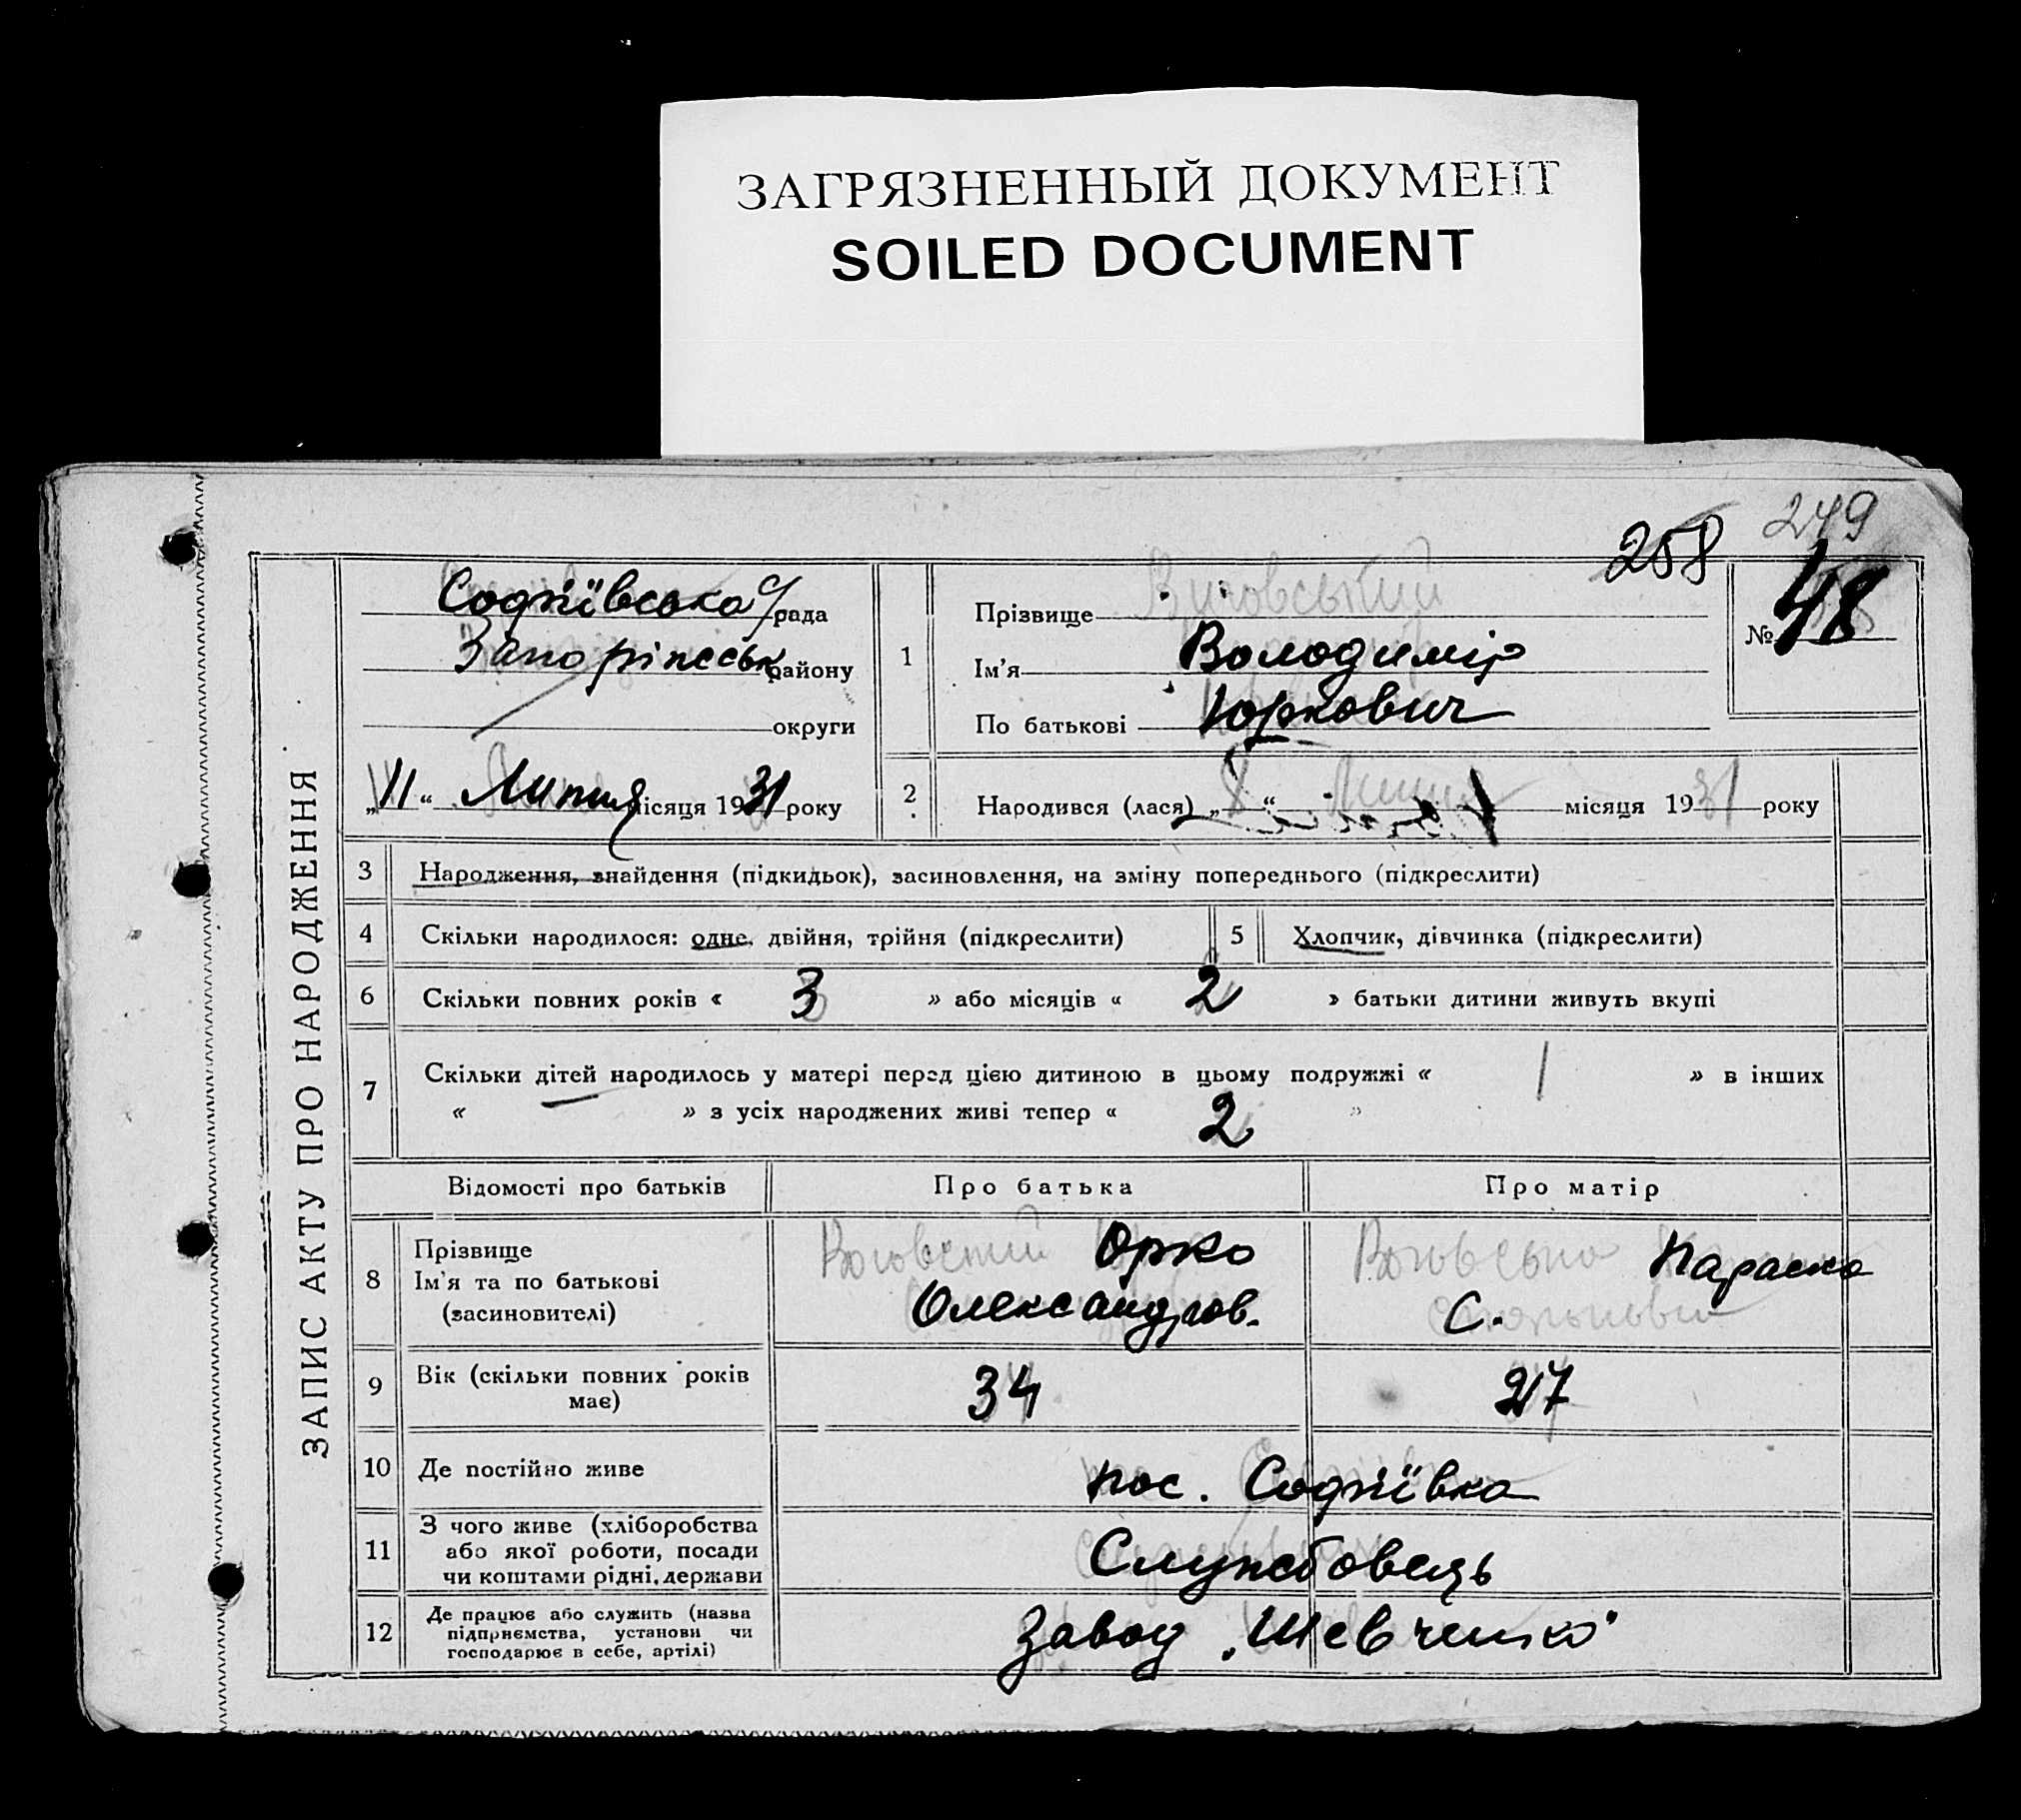 ЗАГРЯЗНЕННЫЙ ДОКУМЕНТ
SOILED DOCUMENT
249
258
ЗАПИС АКТУ ПРО НАРОДЖЕННЯ
Софіївська с/рада
району
округи
„11“ Липня місяця 1931 року
1
Прізвище
Ім’я Володимір
По батькові Юркович
№ 48
2
Народився (лася) „8“ Липня місяця 1931 року
3 Народження, знайдення (підкидьок), засиновлення, на зміну попереднього (підкреслити)
4 Скільки народилося: одне, двійня, трійня (підкреслити)
5 Хлопчик, дівчинка (підкреслити)
6 Скільки повних років « 3 » або місяців « 2 » батьки дитини живуть вкупі
7 Скільки дітей народилось у матері перед цією дитиною в цьому подружжі « 1 » в інших
« — » з усіх народжених живі тепер « 2 »
Відомості про батьків Про батька Про матір
8 Прізвище
Ім’я та по батькові
(засиновителі)
Юрко
Олександров.
Параска
С.
9 Вік (скільки повних років
має)
34 27
10 Де постійно живе пос. Софіївка
11 З чого живе (хліборобства
або якої роботи, посади
чи коштами рідні, держави
Службовець
12 Де працює або служить (назва
підприємства, установи чи
господарює в себе, артілі)
Завод „Шевченко“